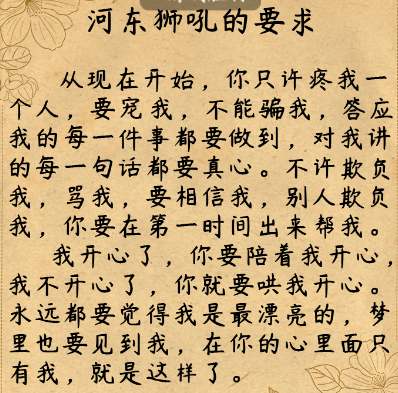 河东狮吼的要求
从现在开始，你只许疼我一
个人，要宠我，不能骗我，答应
我的每一件事都要做到，对我讲
的每一句话都要真心。不许欺负
我，骂我，要相信我，别人欺负
我，你要在第一时间出来帮我。
我开心了，你要陪着我开心，
我不开心了，你就要哄我开心。
永远都要觉得我是最漂亮的，梦
里也要见到我，在你的心里面只
有我，就是这样了。